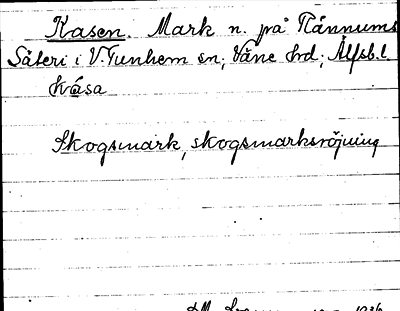 Kasen. Mark n. på Flännums
Säteri i V. Tunhem sn; Väne hrd; Älfsb. l.
kåsa
Skogsmark, skogsmarksröjning
1936